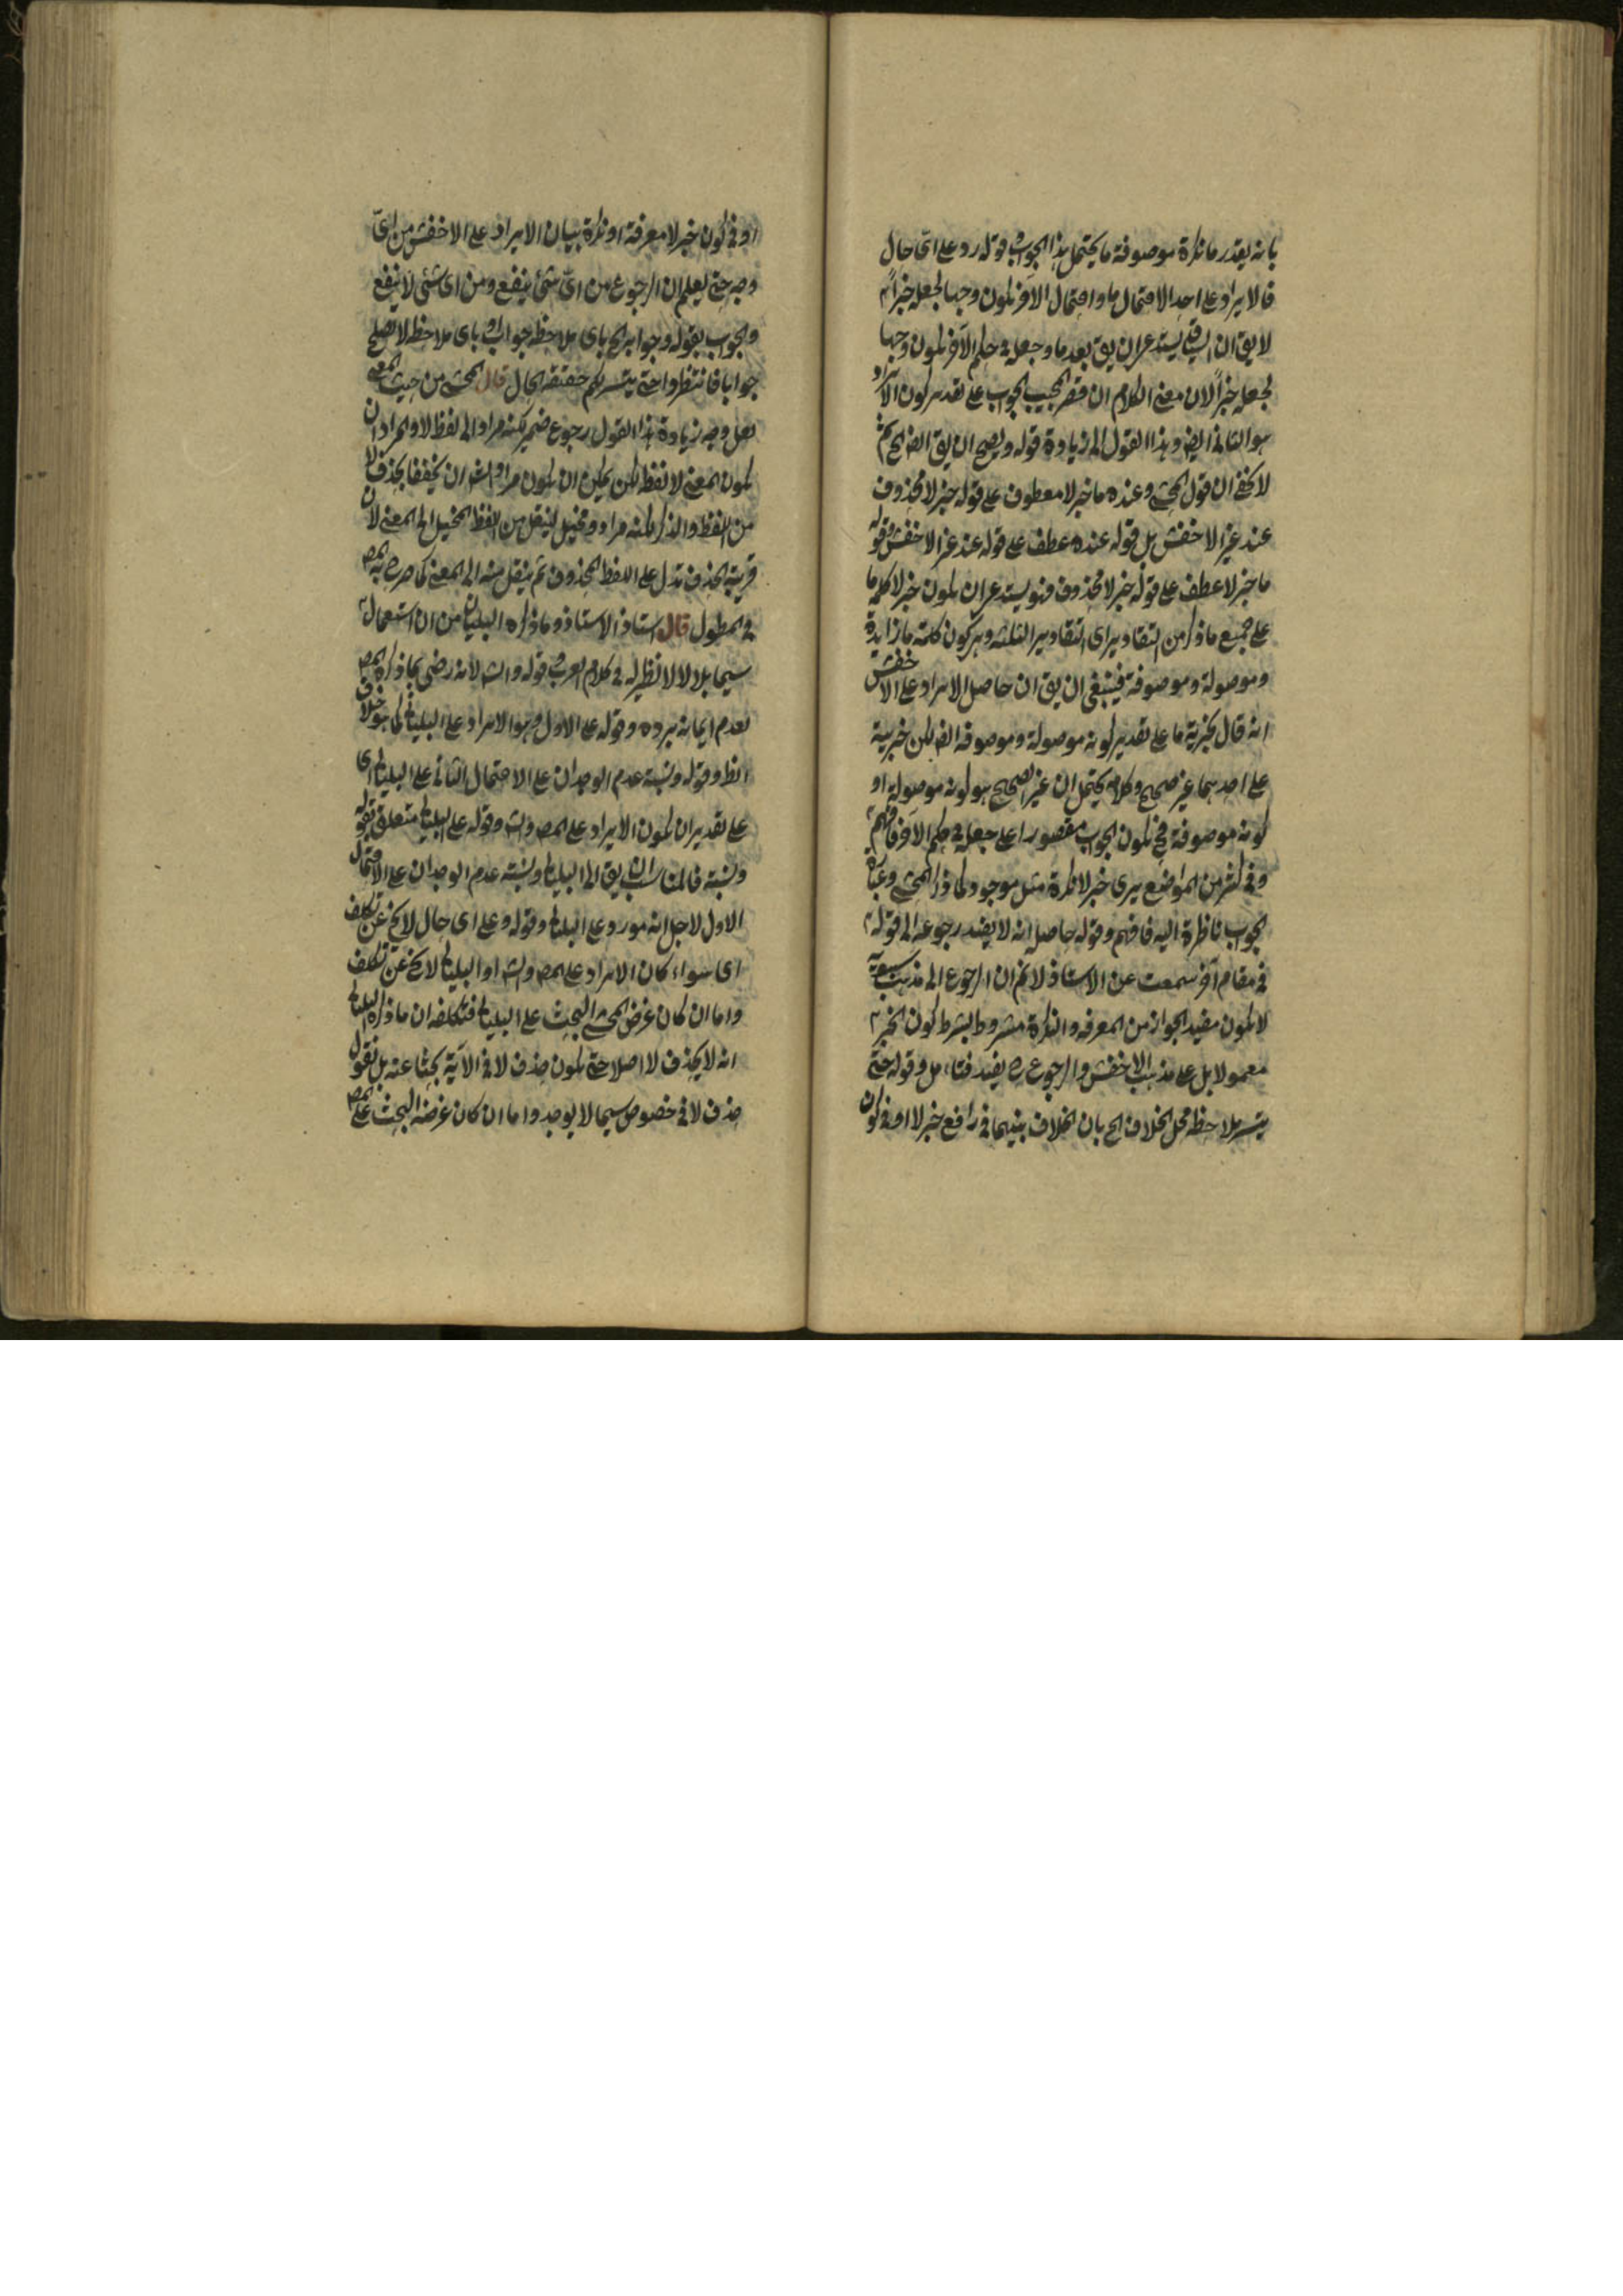 بانه يقدر ما نكرة موصوفة ما يحتمل هذا الجواب وقوله رد على اى حال
فالايراد على احد الاحتمال ما واحتمال الآخر يكون وجها لجعله خبرا
لا يق ان السياق يستدعى ان يق بعد ما وجعله فى حكم الآخر يكون وجها
لجعله خبراً لان معنى الكلام ان قصر المجيب الجواب على تقدير كون الايراد
هو الثانى ايض وهذا القول الى زيادة قوله ويصح ان يق ايض الخ ثم
لا يخفى ان قول المحشى وعنده ما خبر لا معطوف على قوله خبر لا محذوف
عند غير الاخفش بل قوله عنده عطف على قوله عند غير الاخفش وقوله
ما خبر لا عطف على قوله خبر لا محذوف فهو يستدعى ان يكون خبر لا كلمة ما
على جميع ما ذكر من التقادير اى التقادير الثلثه وهى كون كلمة ما زايدة
وموصولة وموصوفة فينبغى ان يق ان حاصل الايراد على الاخفش
انه قال بخبرية ما على تقدير كونه موصولة وموصوفة ايض لكن خبرية
على احدهما غير صحيح وكلامه يحتمل ان غير الصحيح هو كونه موصولة او
كونه موصوفة فح يكون الجواب مقصورا على جعله فى حكم الآخر فافهم
وفى كثير من المواضع يرى خبر لا نكرة مثل موجود كما ذكر المحشى وعبارة
الجواب ناظرة اليه فافهم وقوله حاصله انه لا يفيد رجوعه الى قوله
فى مقام آخر سمعت عن الاستاذ لا نم ان الرجوع الى مذهب سيبويه
لا يكون مفيد الجواز من المعرفة والنكرة مشروط بشرط كون الخبر
معمولا بل على مذهب الاخفش والرجوع ح يفيد فتامل وقوله حتى
يتسر ملاحظة محل الخلاف الخ بان الخلاف بينهما فى رافع خبر لا او فى كون
او فى كون خبر لا معرفة او نكرة ببيان الايراد على الاخفش من اىّ
وجه حتى يعلم ان الرجوع من اىّ شئ ينفع ومن اى شئ لا ينفع
والجواب بقوله وجوابه الخ باى ملاحظه جواب وباى ملاحظه لا يصلح
جوابا فانتظروا حتى يتسر لكم حقيقة الحال قال المحشى من حيث المعنى
لعل وجه زيادة هذا القول رجوع ضمير لكنه مراد الى لفظ لا والمراد ان
يكون المعنى لا لفظه لكن يمكن ان يكون مراد الش ان يخففا بحذف لا
من اللفظ والذكر لكنه مراد وتخيل لينقل من اللفظ المخيل الى المعنى لان
قرينة الحذف تدل على اللفظ المحذوف ثم ينقل منه الى المعنى كما صرح به المص
فى المطول قال استاذ الاستاذ وما ذكره البليانى من ان استعمال
سيما بلا لا لا نظير له فى كلام العرب وقوله والش لانه رضى بما ذكره المص
لعدم ايمانه برده وقوله على الاول وهو الايراد على البليانى كما هو خلاف
الظ وقوله ونسبة عدم الوجدان على الاحتمال الثانى على البليانى اى
على تقدير ان يكون الايراد على المص والش وقوله على البليانى متعلق بقوله
ونسبة فالمناسب ان يق الى البليانى ونسبة عدم الوجدان على الاحتمال
الاول لاجل انه مورد على البليانى وقوله وعلى اى حال لا يخ عن تكلف
اى سواء كان الايراد على المص والش او البليانى لا يخ عن تكلف
واما ان كان غرض المحشى البحث على البليانى فتكلفه ان ما ذكره البليانى
انه لا يحذف لا اصلا حتى يكون حذف لا فى الآية بحثا عنه بل نقول
حذف لا فى خصوص سيما لا يوجد واما ان كان غرضه البحث على المص